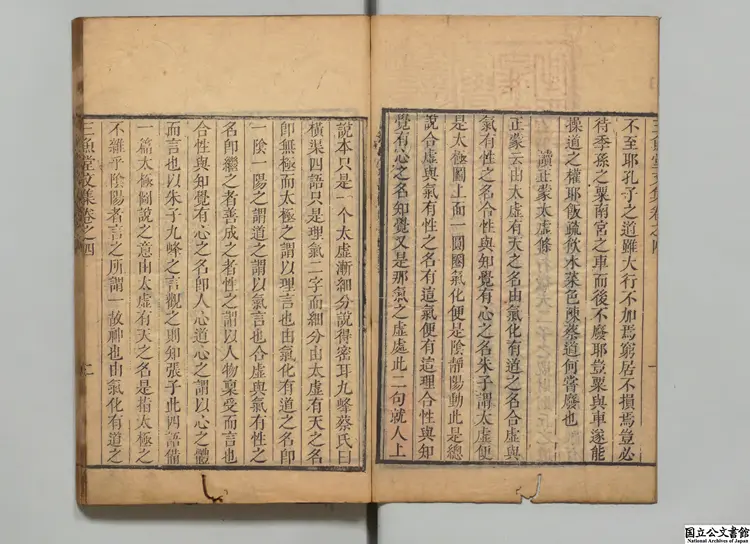 三魚堂文集卷之四
不至耶孔子之道雖大行不加焉窮居不損焉豈必
待季孫之粟南宮之車而後不廢耶豈粟與車遂能
操道之權耶飯疏飲水菜色陳蔡道何嘗廢也
讀正蒙太虛條
正蒙云由太虛有天之名由氣化有道之名合虛與
氣有性之名合性與知覺有心之名朱子謂太虛便
是太極圖上面一圓圈氣化便是陰靜陽動此是總
說合虛與氣有性之名有這氣便有這理合性與知
覺有心之名知覺又是那氣之虛處此二句就人上
說本只是一个太虛漸細分說得密耳九峰蔡氏曰
橫渠四語只是理氣二字而細分由太虛有天之名
即無極而太極之謂以理言也由氣化有道之名即
一陰一陽之謂道之謂以氣言也合虛與氣有性之
名即繼之者善成之者性之謂以人物稟受而言也
合性與知覺有心之名即人心道心之謂以心之體
而言也以朱子九峰之言觀之則知張子此四語備
一篇太極圖說之意由太虛有天之名是指太極之
不雜乎陰陽者言之所謂一故神也由氣化有道之
三魚堂文集卷之四
二
国立公文書館
National Archives of Japan